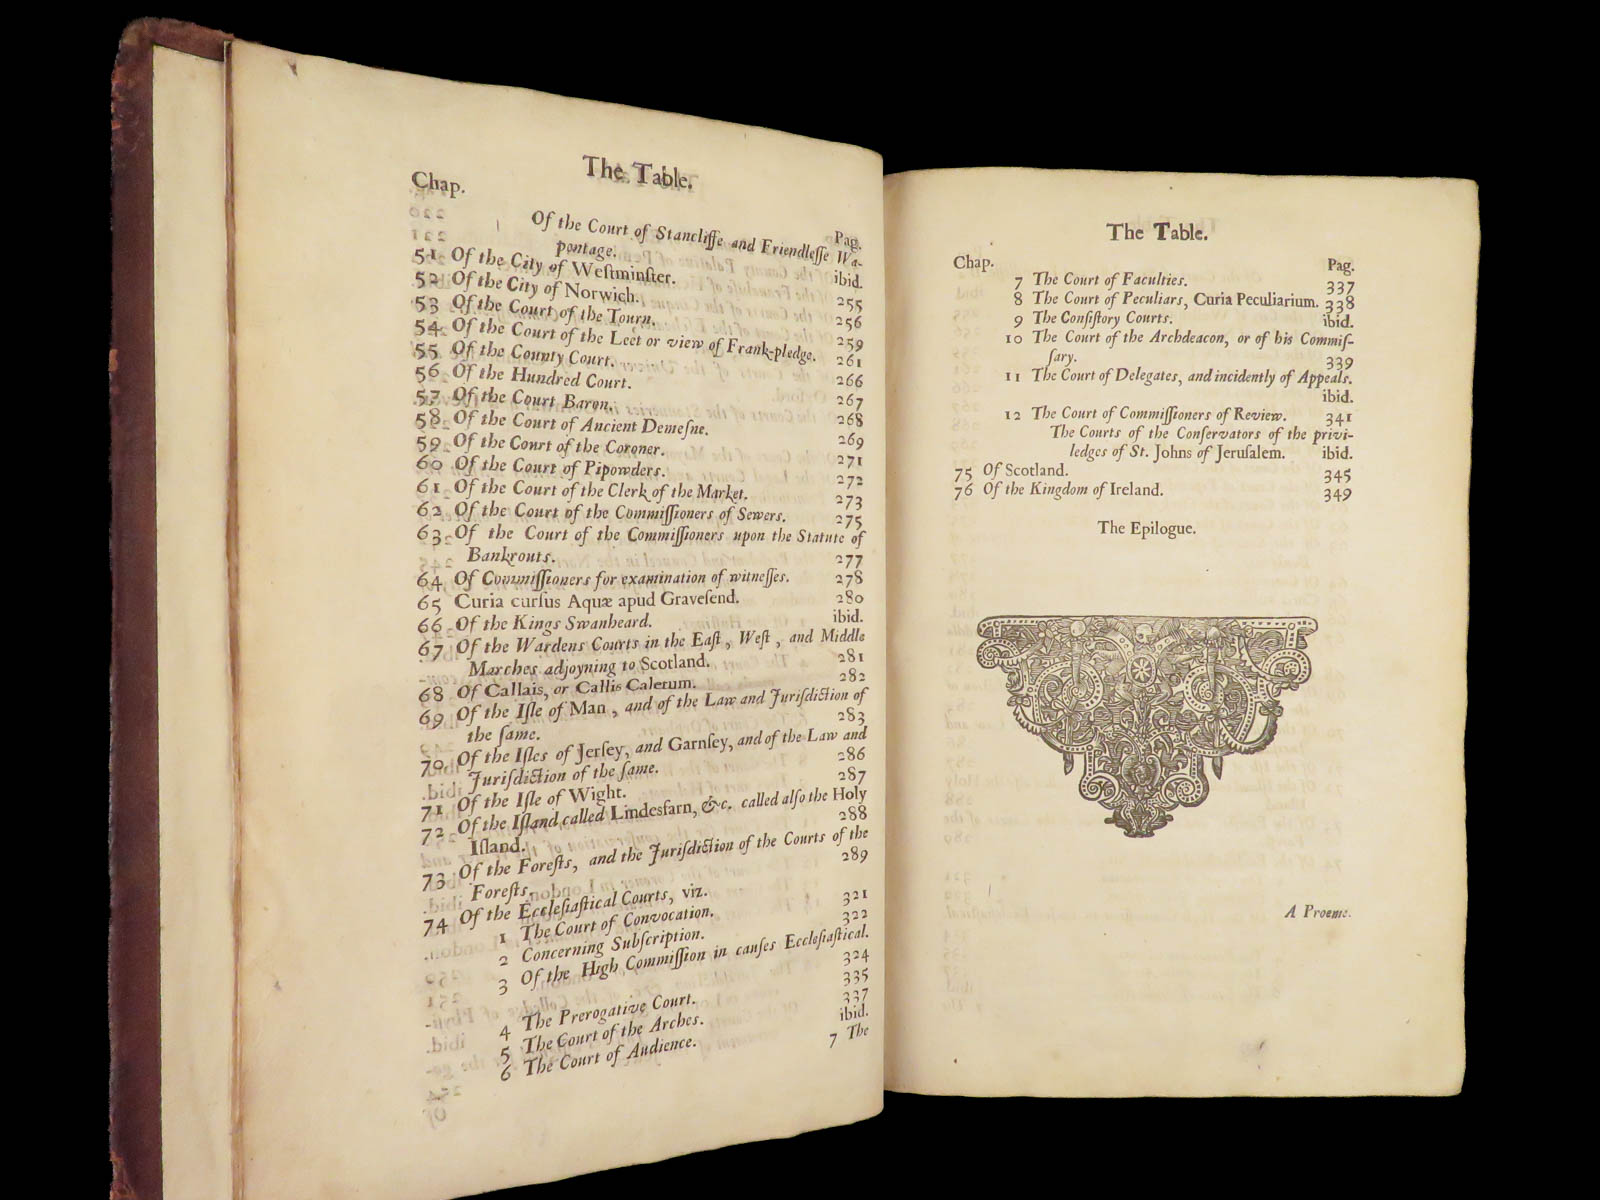 The Table.
Chap.
Pag.
Of the Court of Stancliffe and Friendlesse Wa-
pontage. ibid.
51 Of the City of Westminster. 255
52 Of the City of Norwich. 256
53 Of the Court of the Tourn. 259
54 Of the Court of the Leet or view of Frank-pledge. 261
55 Of the County Court. 266
56 Of the Hundred Court. 267
57 Of the Court Baron. 268
58 Of the Court of Ancient Demesne. 269
59 Of the Court of the Coroner. 271
60 Of the Court of Pipowders. 272
61 Of the Court of the Clerk of the Market. 273
62 Of the Court of the Commissioners of Sewers. 275
63 Of the Court of the Commissioners upon the Statute of
Bankrouts. 277
64 Of Commissioners for examination of witnesses. 278
65 Curia cursus Aquæ apud Gravesend. 280
66 Of the Kings Swanheard. ibid.
67 Of the Wardens Courts in the East, West, and Middle
Marches adjoyning to Scotland. 281
68 Of Callais, or Callis Caletum. 282
69 Of the Isle of Man, and of the Law and Jurisdiction of
the same. 283
70 Of the Isles of Jersey, and Garnsey, and of the Law and
Jurisdiction of the same. 286
71 Of the Isle of Wight. 287
72 Of the Island called Lindesfarn, &c. called also the Holy
Island. 288
73 Of the Forests, and the Jurisdiction of the Courts of the
Forests. 289
74 Of the Ecclesiastical Courts, viz.
1 The Court of Convocation. 321
2 Concerning Subscription. 322
3 Of the High Commission in causes Ecclesiastical.
324
4 The Prerogative Court. 335
5 The Court of the Arches. 337
6 The Court of Audience. ibid.
7 The
The Table.
Chap. Pag.
7 The Court of Faculties. 337
8 The Court of Peculiars, Curia Peculiarium. 338
9 The Consistory Courts. ibid.
10 The Court of the Archdeacon, or of his Commis-
sary. 339
11 The Court of Delegates, and incidently of Appeals.
ibid.
12 The Court of Commissioners of Review. 341
The Courts of the Conservators of the privi-
ledges of St. Johns of Jerusalem. ibid.
75 Of Scotland. 345
76 Of the Kingdom of Ireland. 349
The Epilogue.
A Proeme.